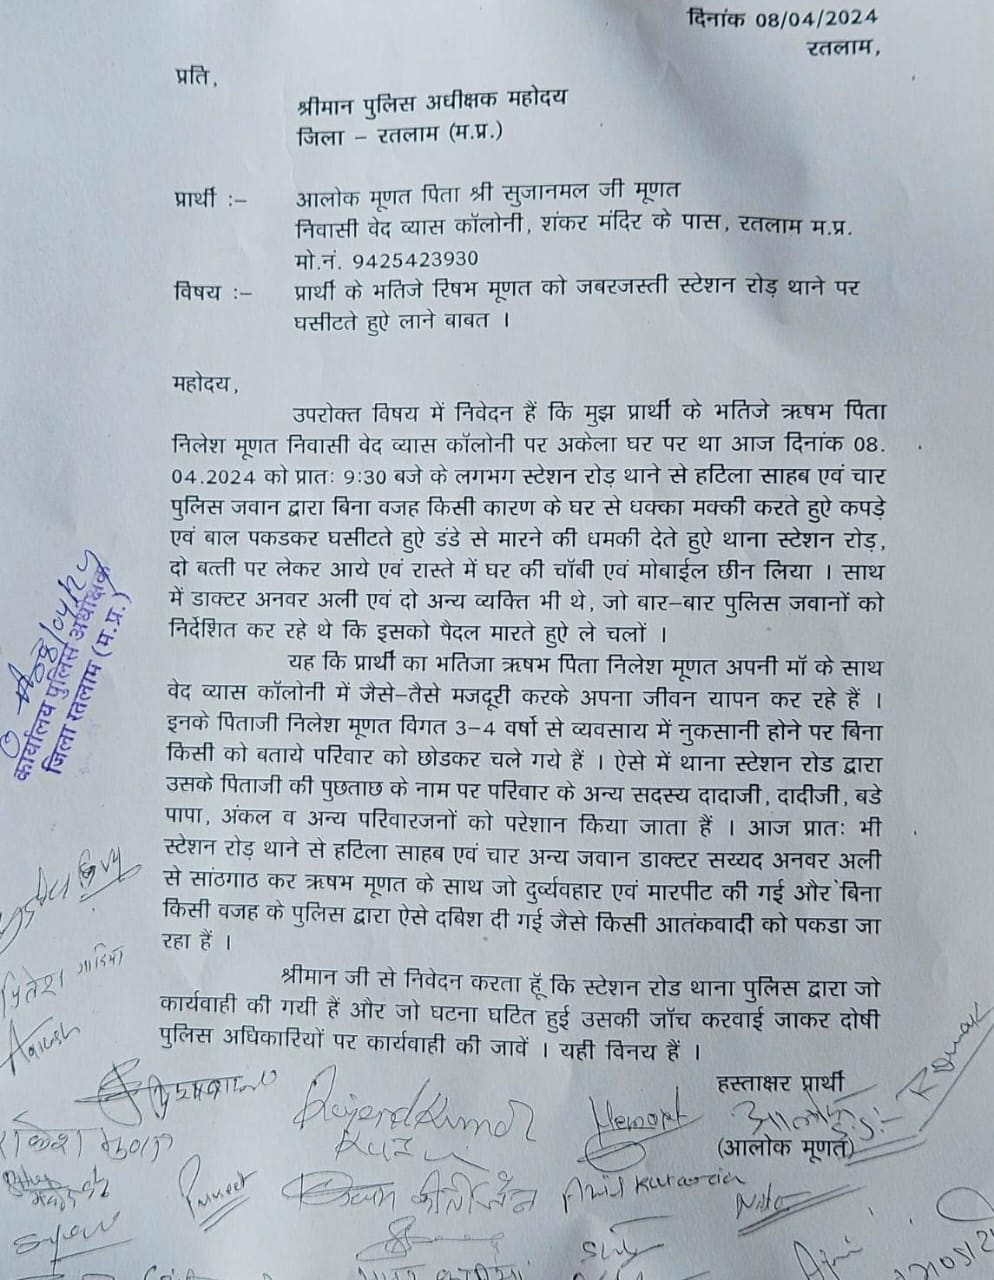 दिनांक 08/04/2024
रतलाम,
प्रति,
श्रीमान पुलिस अधीक्षक महोदय
जिला – रतलाम (म.प्र.)
प्रार्थी :– आलोक मूणत पिता श्री सुजानमल जी मूणत
निवासी वेद व्यास कॉलोनी, शंकर मंदिर के पास, रतलाम म.प्र.
मो.नं. 9425423930
विषय :– प्रार्थी के भतिजे रिषभ मूणत को जबरजस्ती स्टेशन रोड़ थाने पर
घसीटते हुऐ लाने बाबत ।
महोदय,
उपरोक्त विषय में निवेदन हैं कि मुझ प्रार्थी के भतिजे ऋषभ पिता
निलेश मूणत निवासी वेद व्यास कॉलोनी पर अकेला घर पर था आज दिनांक 08.
04.2024 को प्रातः 9:30 बजे के लगभग स्टेशन रोड़ थाने से हटिला साहब एवं चार
पुलिस जवान द्वारा बिना वजह किसी कारण के घर से धक्का मक्की करते हुऐ कपड़े
एवं बाल पकडकर घसीटते हुऐ डंडे से मारने की धमकी देते हुऐ थाना स्टेशन रोड़,
दो बत्ती पर लेकर आये एवं रास्ते में घर की चॉबी एवं मोबाईल छीन लिया । साथ
में डाक्टर अनवर अली एवं दो अन्य व्यक्ति भी थे, जो बार–बार पुलिस जवानों को
निर्देशित कर रहे थे कि इसको पैदल मारते हुऐ ले चलों ।
यह कि प्रार्थी का भतिजा ऋषभ पिता निलेश मूणत अपनी मॉ के साथ
वेद व्यास कॉलोनी में जैसे–तैसे मजदूरी करके अपना जीवन यापन कर रहे हैं ।
इनके पिताजी निलेश मूणत विगत 3–4 वर्षो से व्यवसाय में नुकसानी होने पर बिना
किसी को बताये परिवार को छोडकर चले गये हैं । ऐसे में थाना स्टेशन रोड द्वारा
उसके पिताजी की पुछताछ के नाम पर परिवार के अन्य सदस्य दादाजी, दादीजी, बडे
पापा, अंकल व अन्य परिवारजनों को परेशान किया जाता हैं । आज प्रातः भी
स्टेशन रोड़ थाने से हटिला साहब एवं चार अन्य जवान डाक्टर सय्यद अनवर अली
से सांठगाठ कर ऋषभ मूणत के साथ जो दुर्व्यवहार एवं मारपीट की गई और बिना
किसी वजह के पुलिस द्वारा ऐसे दबिश दी गई जैसे किसी आतंकवादी को पकडा जा
रहा हैं ।
श्रीमान जी से निवेदन करता हूँ कि स्टेशन रोड थाना पुलिस द्वारा जो
कार्यवाही की गयी हैं और जो घटना घटित हुई उसकी जॉच करवाई जाकर दोषी
पुलिस अधिकारियों पर कार्यवाही की जावें । यही विनय हैं ।
हस्ताक्षर प्रार्थी
(आलोक मूणत)
08/04/24
कार्यालय पुलिस अधीक्षक
जिला रतलाम (म.प्र.)
Aakash
Rajendra Kumar
Hemant
Puneet
Anil